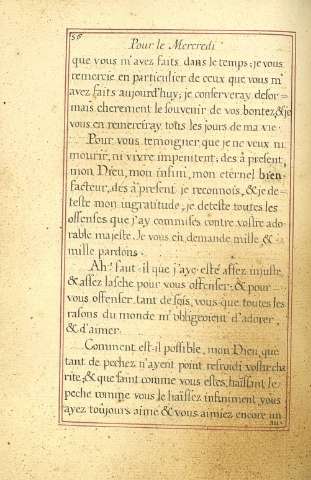 56
Pour le Mercredi
que vous m'avez faits dans le temps; je vous
remercie en particulier de ceux que vous m'
avez faits aujourd'huy; je conserveray desor=
mais cherement le souvenir de vos bontez, & je
vous en remerciray tous les jours de ma vie.
Pour vous temoigner que je ne veux ni
mourir, ni vivre impenitent; des à present,
mon Dieu, mon infini, mon eternel bien-
facteur, des à present je reconnois, & je de=
teste mon ingratitude, je deteste toutes les
offenses que j'ay commises contre vostre ado-
rable majesté. Je vous en demande mille, &
mille pardons.
Ah! faut-il que j'aye esté assez injuste,
& assez lasche pour vous offenser; & pour
vous offenser, tant de fois, vous que toutes les
raisons du monde m'obligeoient d'adorer,
& d'aimer.
Comment est-il possible, mon Dieu, que
tant de pechez n'ayent point refroidi vostre cha
rité; & que saint comme vous estes, haïssant le
peché comme vous le haïssez infiniment, vous
ayez toujours aimé & vous aimiez encore un
au-